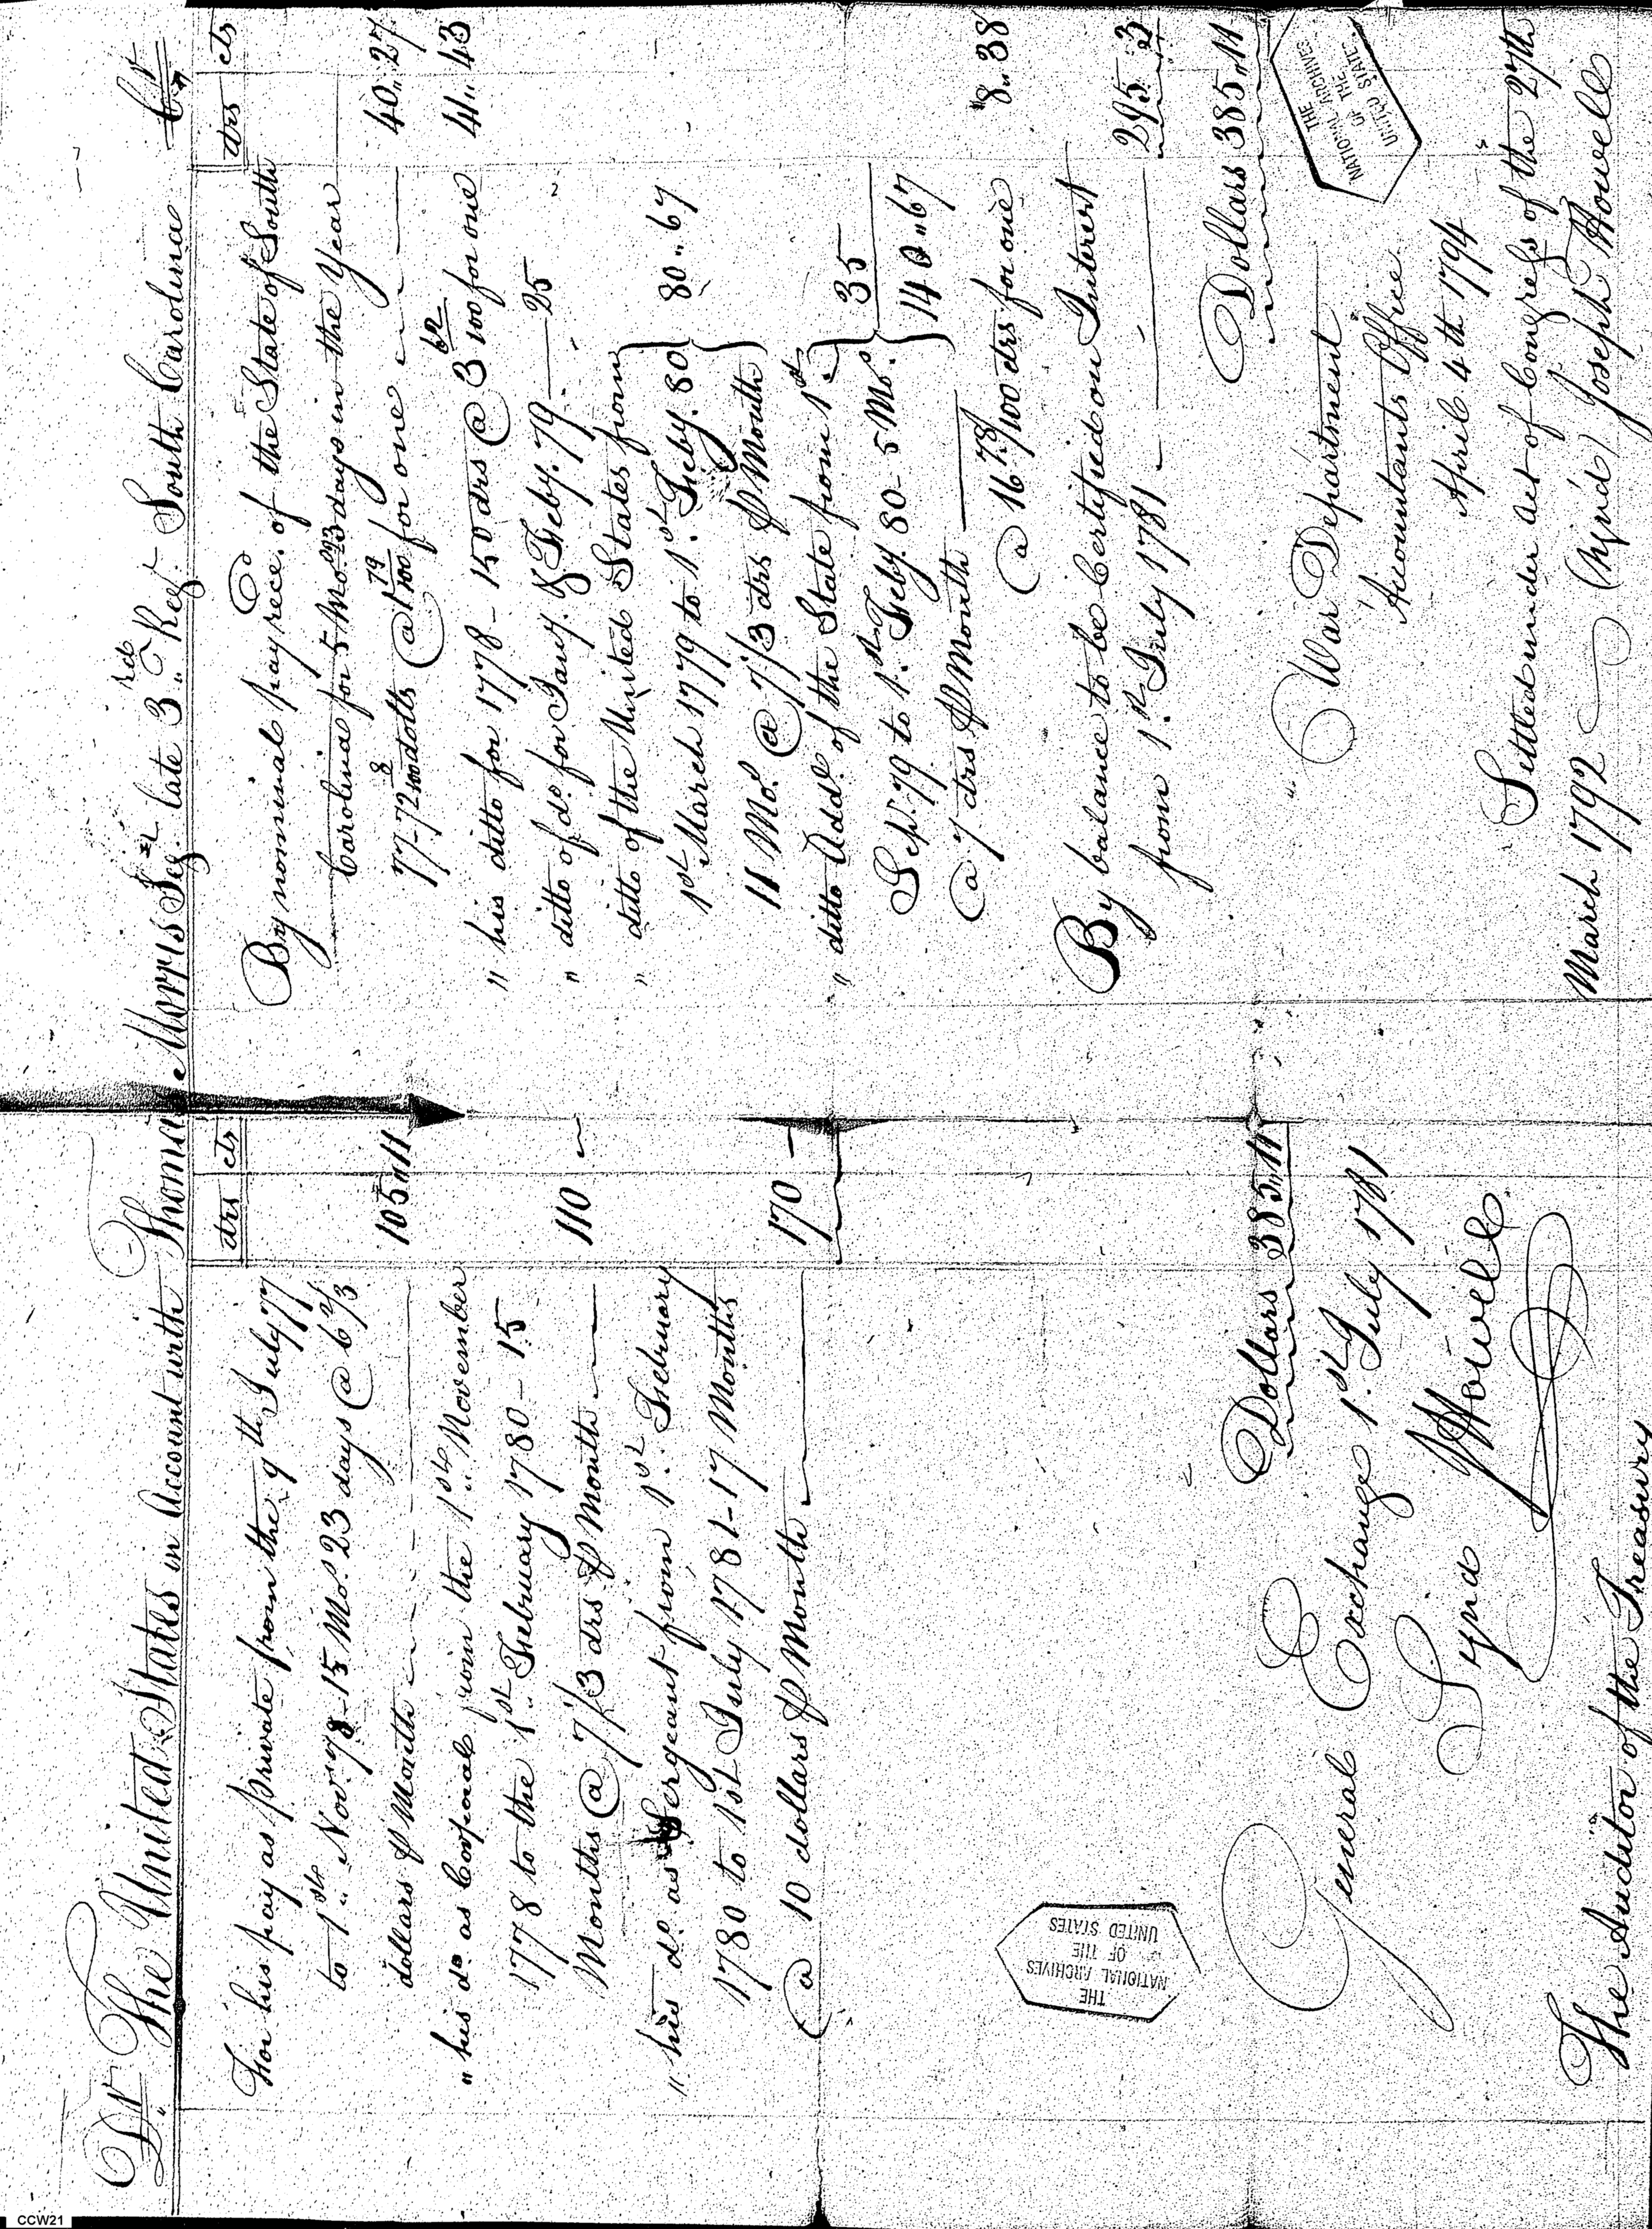 Dr The United States in Account with Thomas Morris Seg.t late 3.rd Reg.t South Carolina Cr
drs cts
For his pay as private from the 9th July 77
to 1st Nov.r 78 - 15 Mo.s 23 days @ 6 2/3
dollars P Month 105 " 11
" his do as Corporal from the 1st November
1778 to the 1st February 1780 - 15
Months @ 7/3 drs P Month 110
" his do as Sergeant from 1st February
1780 to 1st July 1781 - 17 Months
@ 10 dollars P Month 170
Dollars 385 " 11
General Exchange 1st July 1781
Synd J Howell
The Auditor of the Treasury
THE
NATIONAL ARCHIVES
OF THE
UNITED STATES
drs cts
By nominal pay rece.d of the State of South
Carolina for 5 Mo.s 23 days in the Year
77 - 72 8/100 dolls @ 1 79/100 for one 40 " 27
" his ditto for 1778 - 150 drs @ 3 62/100 for one 41 " 43
" ditto of do for Jany. & Feby. 79 25
" ditto of the United States from
1st March 1779 to 1st Feby. 80
11 Mo.s @ 7/3 drs P Month 80 " 67
" ditto Add.l of the State from 1st
Sep.r 79 to 1st Feby. 80 - 5 Mo.s
@ 7 drs P Month 35
140 " 67
@ 16 78/100 drs for one 8 " 38
By balance to be Certified on Interest
from 1st July 1781 295 " 3
Dollars 385 " 11
War Department
Accountants Office
April 4th 1794
Settled under act of Congress of the 27th
March 1792 (Synd) Joseph Howell
THE
NATIONAL ARCHIVES
OF THE
UNITED STATE
CCW21